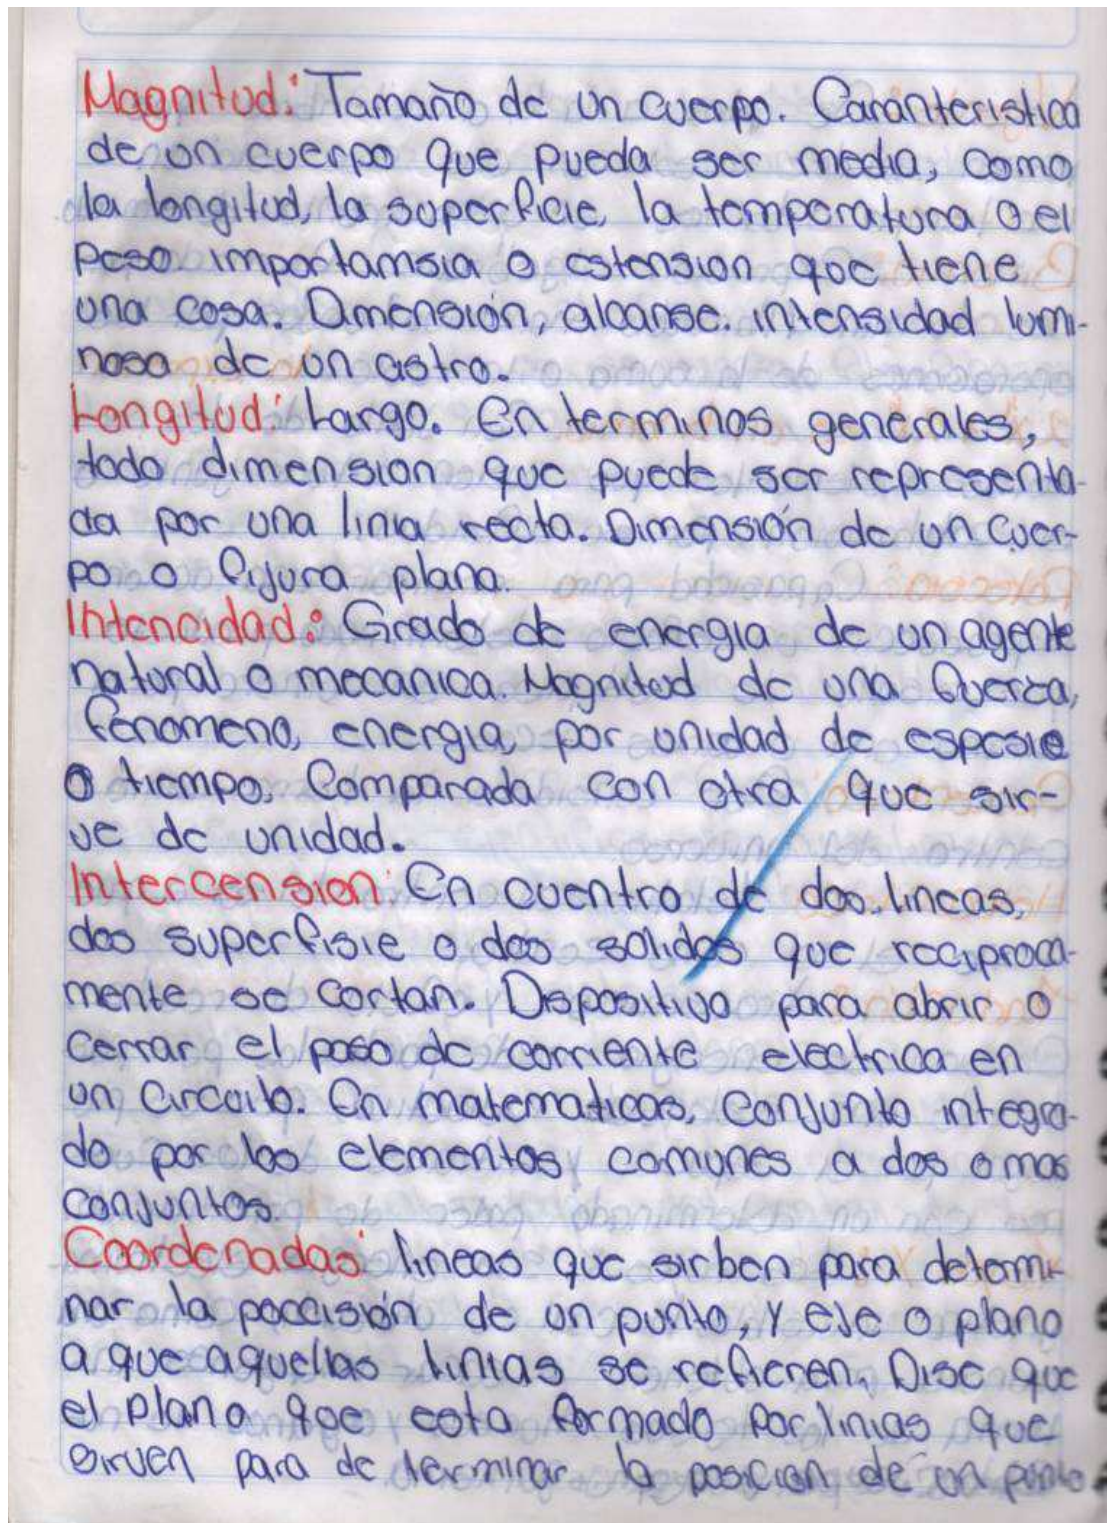 Magnitud: Tamaño de un cuerpo. Caranteristica
de un cuerpo que pueda ser media, como
la longitud, la superficie, la temperatura o el
peso importamsia o estension que tiene
una cosa. Dmensión, alcanse. intensidad lumi-
nosa de un astro.
Longitud: Largo. En terminos generales,
todo dimension que puede ser representa-
da por una linia recta. Dimensión de un cuer-
po o fijura plana.
Intencidad: Grado de energia de un agente
natural o mecanica. Magnitud de una fuerza,
fenomeno, energia, por unidad de espesie
o tiempo. Comparada con otra que sir-
ve de unidad.
Intercension: En cuentro de dos lineas,
dos superfisie o dos solidos que reciproca-
mente se cortan. Dispositivo para abrir o
cerrar el paso de corriente electrica en
un circuito. En matematicas, conjunto integra-
do por los elementos comunes a dos o mas
conjuntos.
Coordenadas: lineas que sirben para determi-
nar la poccisión de un punto, y eje o plano
a que aquellas linias se refieren. Dise que
el plano que esta formado por linias que
sirven para de terminar la posicion de un punto